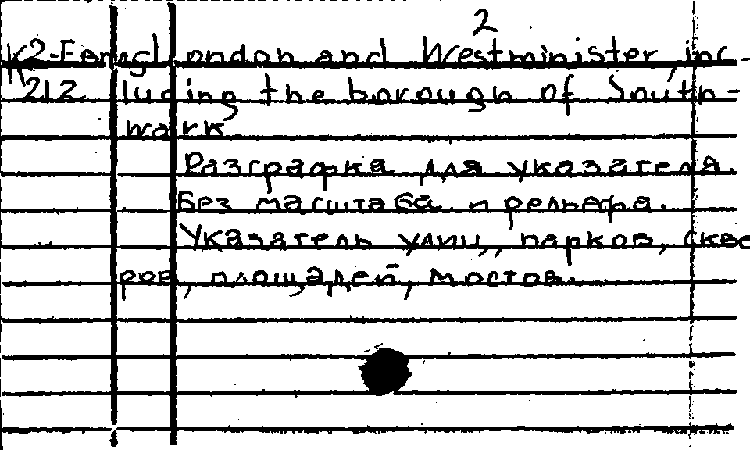 2
К2-Fengl London and Westminister, inc-
212 luding the borough of South-
wark
Разграфка для указателя.
Без масштаба и рельефа.
Указатель улиц, парков, скве
ров, площадей, мостов.